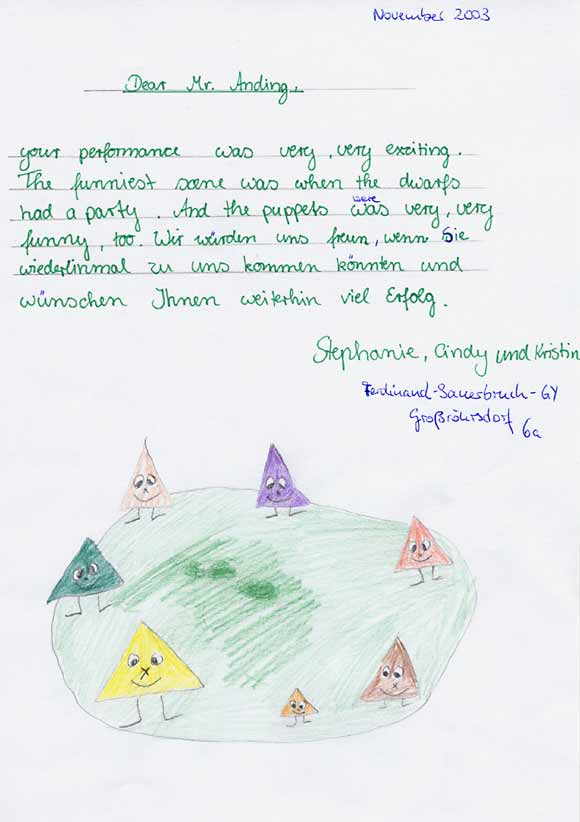 November 2003
Dear Mr. Anding,
your performance was very, very exciting.
The funniest scene was when the dwarfs
had a party. And the puppets was were very, very
funny, too. Wir würden uns freun, wenn Sie
wiedereinmal zu uns kommen könnten und
wünschen Ihnen weiterhin viel Erfolg.
Stephanie, Cindy und Kristin
Ferdinand-Sauerbruch-GY
Großröhrsdorf
6a